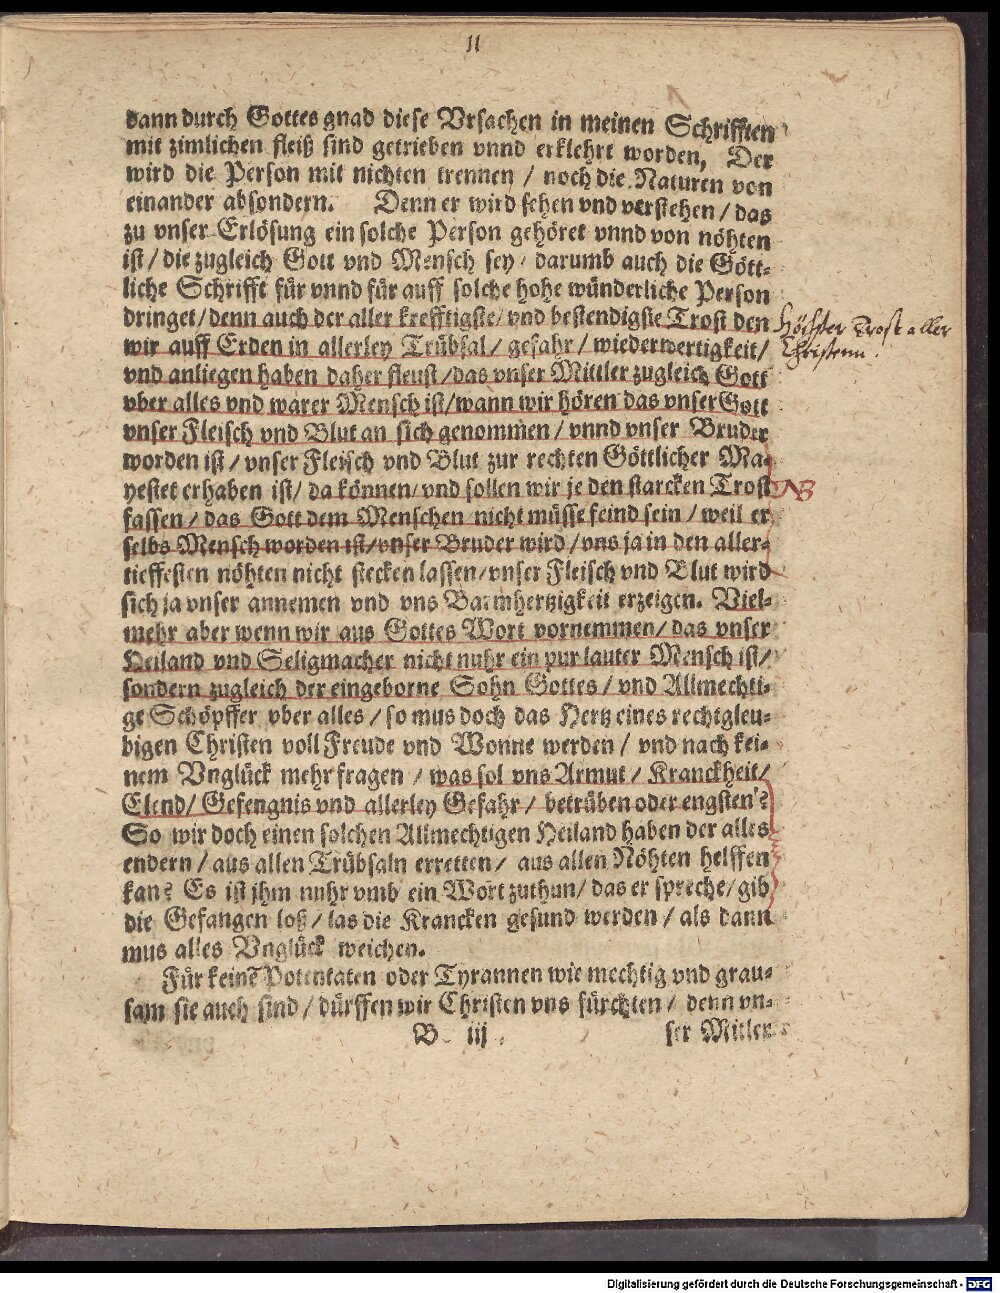 11
dann durch Gottes gnad diese Vrsachen in meinen Schrifften
mit zimlichen fleiß sind getrieben vnnd erklehrt worden, Der
wird die Person mit nichten trennen / noch die Naturen von
einander absondern. Denn er wird sehen vnd verstehen / das
zu vnser Erlösung ein solche Person gehöret vnnd von nöhten
ist / die zugleich Gott vnd Mensch sey / darumb auch die Gött-
liche Schrifft für vnnd für auff solche hohe wünderliche Person
dringet / denn auch der aller krefftigste / vnd bestendigste Trost den
Höchster Trost aller
wir auff Erden in allerley Trübsal / gefahr / wiederwertigkeit /
Christenn.
vnd anliegen haben daher fleust / das vnser Mittler zugleich Gott
vber alles vnd warer Mensch ist / wann wir hören das vnser Gott
vnser Fleisch vnd Blut an sich genommen / vnnd vnser Bruder
worden ist / vnser Fleisch vnd Blut zur rechten Göttlicher Ma-
yestet erhaben ist / da können / vnd sollen wir je den starcken Trost
NB
fassen / das Gott dem Menschen nicht müsse feind sein / weil er
selbs Mensch worden ist / vnser Bruder wird / vns ja in den aller-
tieffesten nöhten nicht stecken lassen / vnser Fleisch vnd Blut wird
sich ja vnser annemen vnd vns Barmhertzigkeit erzeigen. Viel-
mehr aber wenn wir aus Gottes Wort vornemmen / das vnser
Heiland vnd Seligmacher nicht nuhr ein pur lauter Mensch ist /
sondern zugleich der eingeborne Sohn Gottes / vnd Allmechti-
ge Schöpffer vber alles / so mus doch das Hertz eines rechtgleu-
bigen Christen voll Freude vnd Wonne werden / vnd nach kei-
nem Vnglück mehr fragen / was sol vns Armut / Kranckheit /
Elend / Gefengnis vnd allerley Gefahr / betrüben oder engsten?
So wir doch einen solchen Allmechtigen Heiland haben der alles
endern / aus allen Trübsaln erretten / aus allen Nöhten helffen
kan? Es ist jhm nuhr vmb ein Wort zuthun / das er spreche / gib
die Gefangen loß / las die Krancken gesund werden / als dann
mus alles Vnglück weichen.
Für keine Potentaten oder Tyrannen wie mechtig vnd grau-
sam sie auch sind / dürffen wir Christen vns fürchten / denn vn-
B iij
ser Mitler
Digitalisierung gefördert durch die Deutsche Forschungsgemeinschaft - DFG